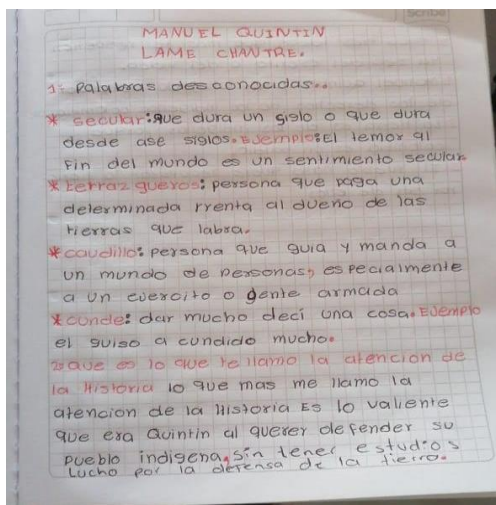 scribe
MANUEL QUINTIN
LAME CHANTRE.
1= Palabras desconocidas..
* secular: que dura un siglo o que dura
desde ase siglos. Ejemplo: El temor al
fin del mundo es un sentimiento secular
* terrazgueros: persona que paga una
determinada rrenta al dueño de las
tierras que labra.
* caudillo: persona que guia y manda a
un mundo de personas, especialmente
a un ejercito o gente armada
* cunde: dar mucho deci una cosa. Ejemplo
el guiso a cundido mucho.
2= que es lo que te llamo la atencion de
la Historia lo que mas me llamo la
atencion de la Historia Es lo valiente
que era Quintin al querer defender su
pueblo indigena, sin tener estudios
Lucho por la defensa de la tierra.